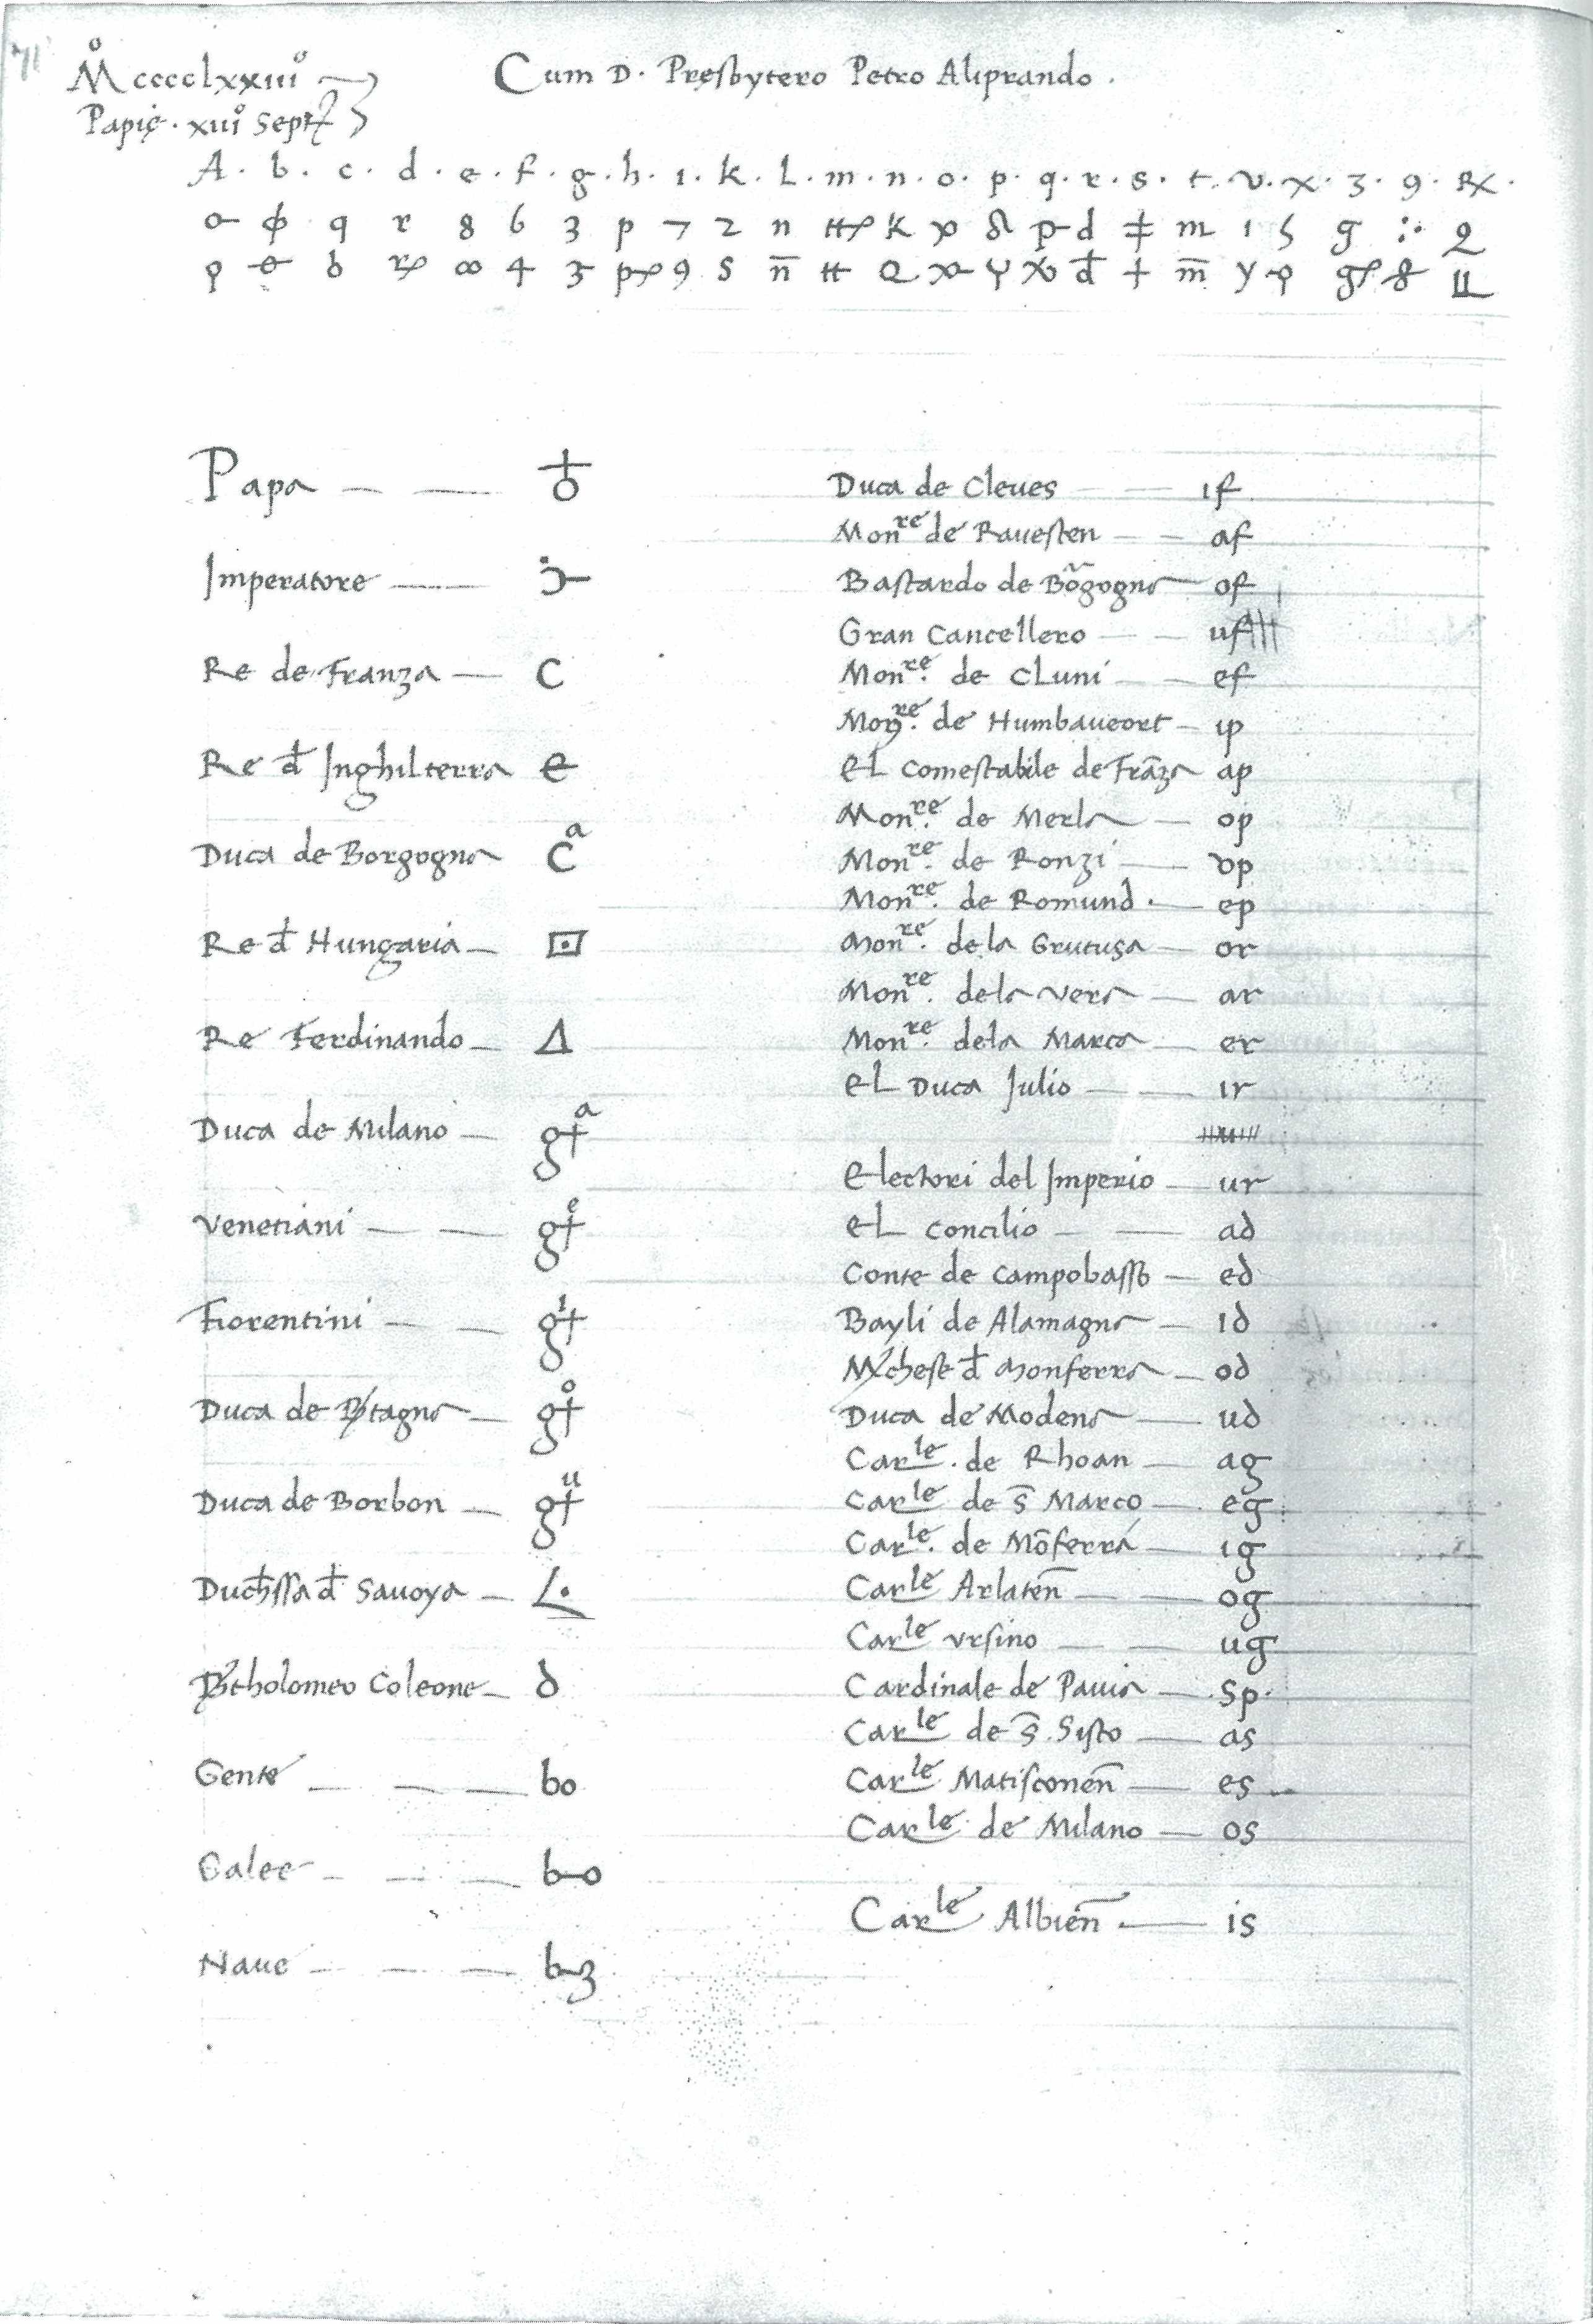 71
Mº cccclxxiiiº
Cum D. Presbytero Petro Aliprando.
Papię. xiiiº Sept
A. b. c. d. e. f. g. h. i. k. l. m. n. o. p. q. r. s. t. v. x. z. 9. Rx.
q r 8 6 3 p 2 n k p d ǂ m 1 g :· 2
∞ 4 9 s n̄ Q đ + m̄ y
Papa — — ♁
Imperatore —
Re de Franza — C
Re đ Inghilterra e
Duca de Borgogna Cᵃ
Re đ Hungaria — ⊡
Re Ferdinando — Δ
Duca de Milano — g+ᵃ
Venetiani — — g+ᵉ
Fiorentini — — g+ⁱ
Duca de Bʳtagna — g+º
Duca de Borbon — g+ᵘ
Duchssa đ Savoya — L.
Bartholomeo Coleone — d
Gente — — — bo
Galee — — — b-o
Nave — — — b-z
Duca de Cleves — — if
Monʳᵉ de Ravesten — — af
Bastardo de Bōgogna — of
Gran Cancellero — — uf
Monʳᵉ. de Cluni — — ef
Monʳᵉ. de Humbaucort — ip
el Comestabile de Frāza ap
Monʳᵉ. de Merla — op
Monʳᵉ. de Ronzi — vp
Monʳᵉ. de Romund. — ep
Monʳᵉ. de la Grutusa — or
Monʳᵉ. dela Vera — ar
Monʳᵉ. dela Marca — er
el Duca Julio — — ir
Electori del Imperio — ur
el Concilio — — ad
Conte de Campobasso — ed
Bayli de Alamagna — id
Mchese đ Monferra — od
Duca de Modena — ud
Carˡᵉ. de Rhoan — ag
Carˡᵉ de S̄ Marco — eg
Carˡᵉ. de Mōferra — ig
Carˡᵉ Arlaten̄ — — og
Carˡᵉ Ursino — — ug
Cardinale de Pavia — .sp.
Carˡᵉ de S̄. Sisto — as
Carˡᵉ Matisconen̄ — es
Carˡᵉ de Milano — os
Carˡᵉ Albien̄. — is